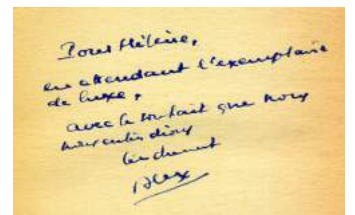 Pour Hélène,
en attendant l'exemplaire
de luxe,
avec le souhait que nous
nous entendions
Alex